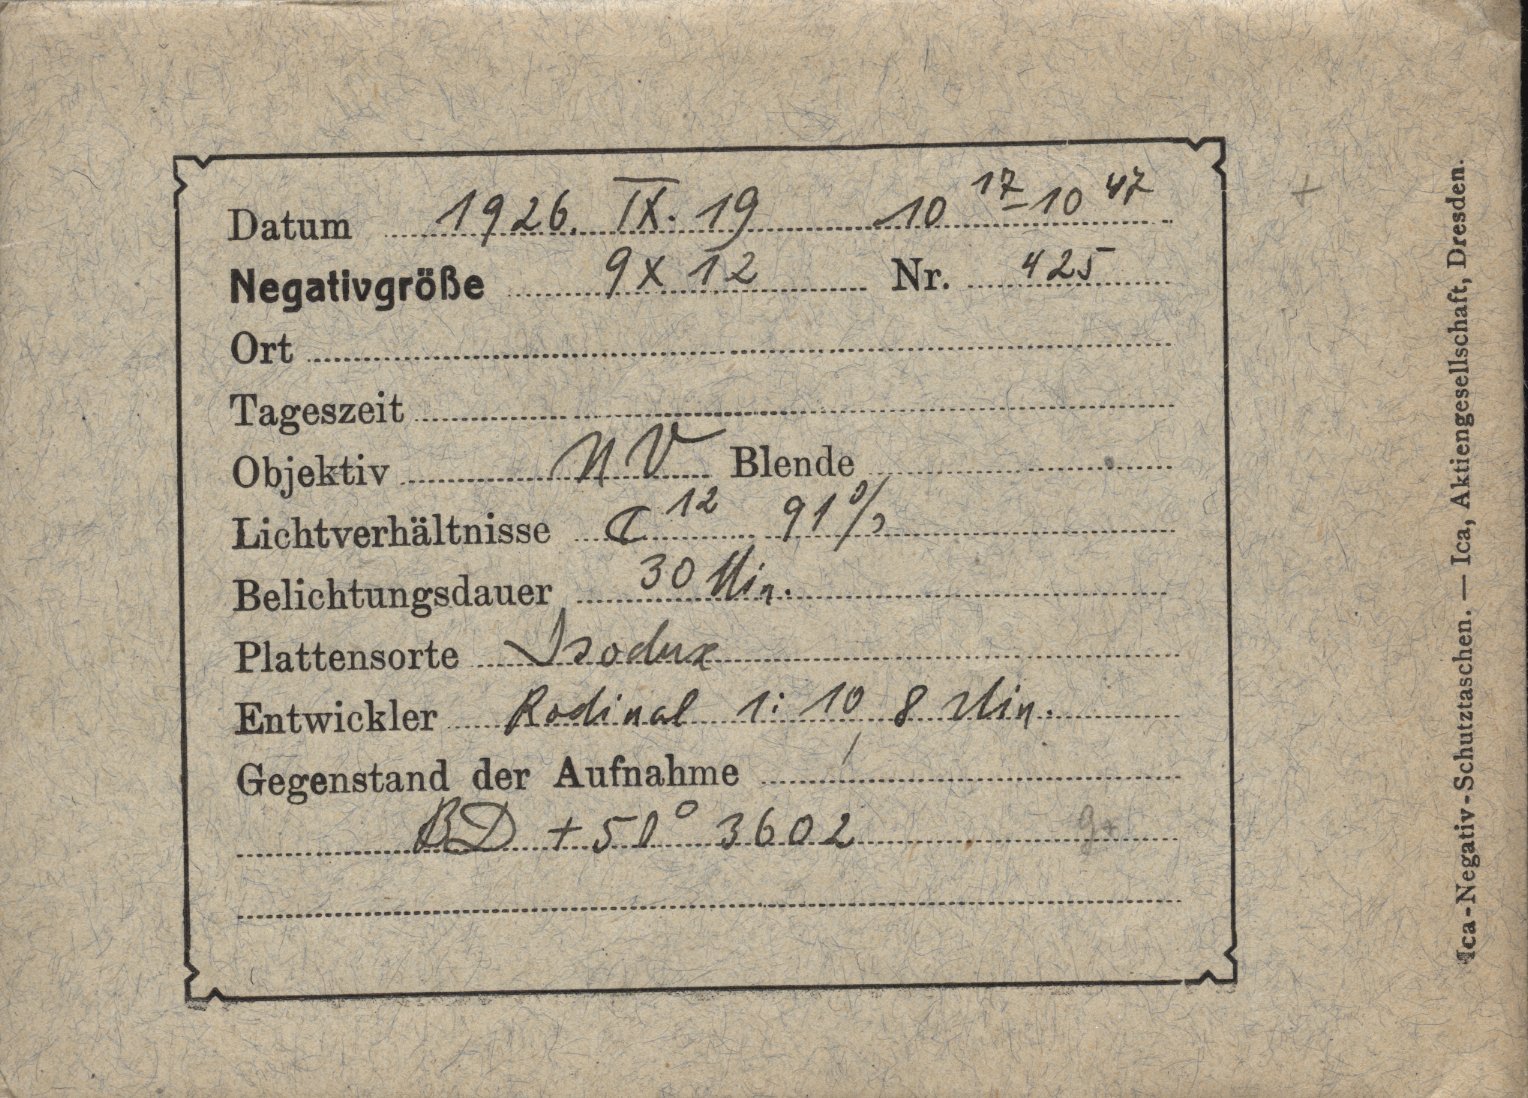 Datum 1926. IX. 19 10 17 - 10 47
Negativgröße 9 x 12 Nr. 425
Ort
Tageszeit
Objektiv NV Blende
Lichtverhältnisse ☾ 12 91%
Belichtungsdauer 30 Min.
Plattensorte Isodux
Entwickler Rodinal 1:10, 8 Min.
Gegenstand der Aufnahme
BD +50° 3602
Ica-Negativ-Schutztaschen. — Ica, Aktiengesellschaft, Dresden.